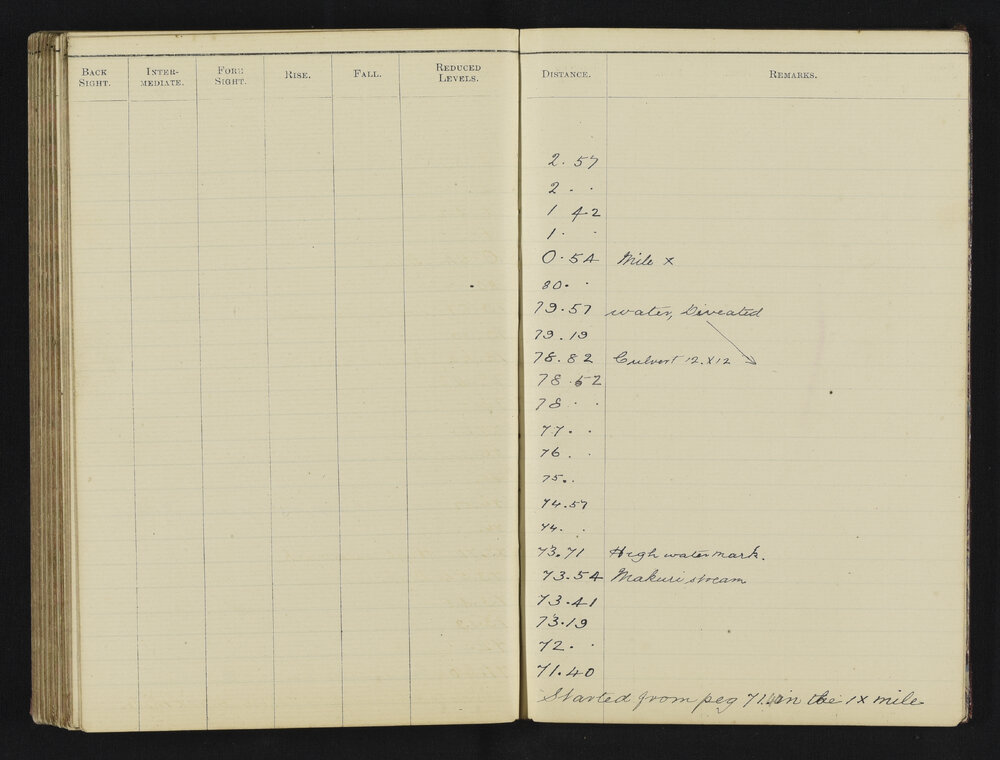 BACK SIGHT. INTER-MEDIATE. FORE SIGHT. RISE. FALL. REDUCED LEVELS. DISTANCE. REMARKS.
2. 57
2 . .
1 42
1 . .
0.54 Mile x
80. .
79.57 water, Diveated
79.19
78.82 Culvert 12.x12
78.62
78 . .
77. .
76 . .
75..
74.57
74. .
73.71 High water mark.
73.54 Makuri stream
73.41
73.19
72. .
71.40
Started from peg 71 in the 1x mile